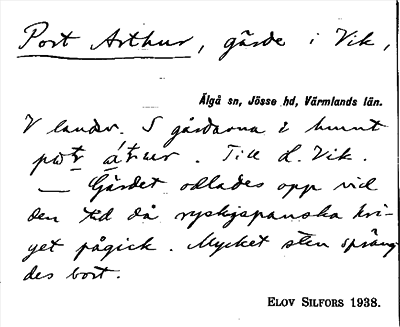 Port Arthur, gärde i Vik,
Älgå sn, Jösse hd, Värmlands län.
V landsv. S gårdarna i
. Till L. Vik.
— Gärdet odlades opp vid
den tid då ryskjapanska kri-
get pågick. Mycket sten spräng-
des bort.
ELOV SILFORS 1938.